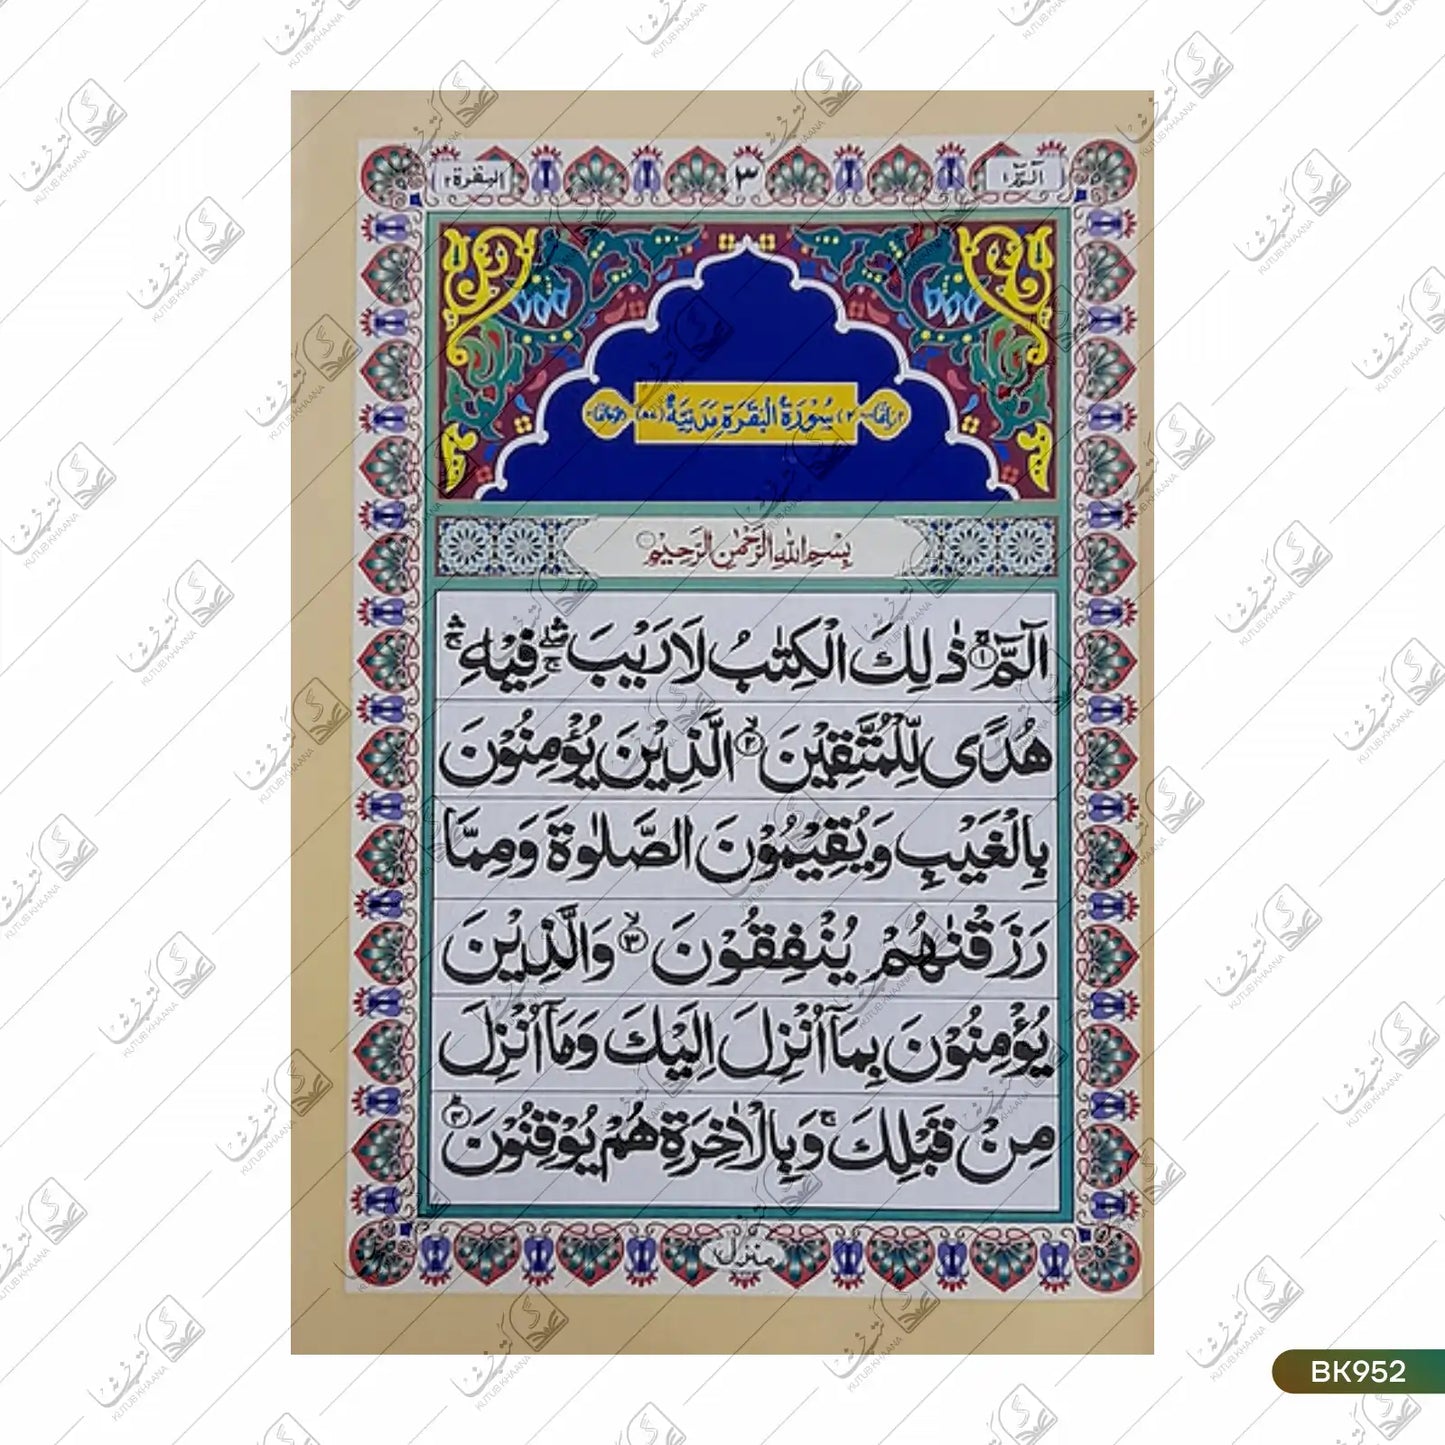 الٓمّٓ ١
٣
البقرة ٢
سُوْرَةُ الْبَقَرَةِ مَدَنِيَّةٌ
بِسْمِ اللّٰهِ الرَّحْمٰنِ الرَّحِيْمِ
الٓمّٓ ۚ‏﴿۱﴾ ذٰلِكَ الْكِتٰبُ لَا رَيْبَ ۛۖۚ فِيْهِ ۛۚ
هُدًى لِّلْمُتَّقِيْنَ ۙ‏﴿۲﴾ الَّذِيْنَ يُؤْمِنُوْنَ
بِالْغَيْبِ وَيُقِيْمُوْنَ الصَّلٰوةَ وَمِمَّا
رَزَقْنٰهُمْ يُنْفِقُوْنَ ۙ‏﴿۳﴾ وَالَّذِيْنَ
يُؤْمِنُوْنَ بِمَاۤ اُنْزِلَ اِلَيْكَ وَمَاۤ اُنْزِلَ
مِنْ قَبْلِكَ ۚ وَبِالْاٰخِرَةِ هُمْ يُوْقِنُوْنَ ؕ‏﴿۴﴾
منزل ١
BK952
KUTUB KHAANA